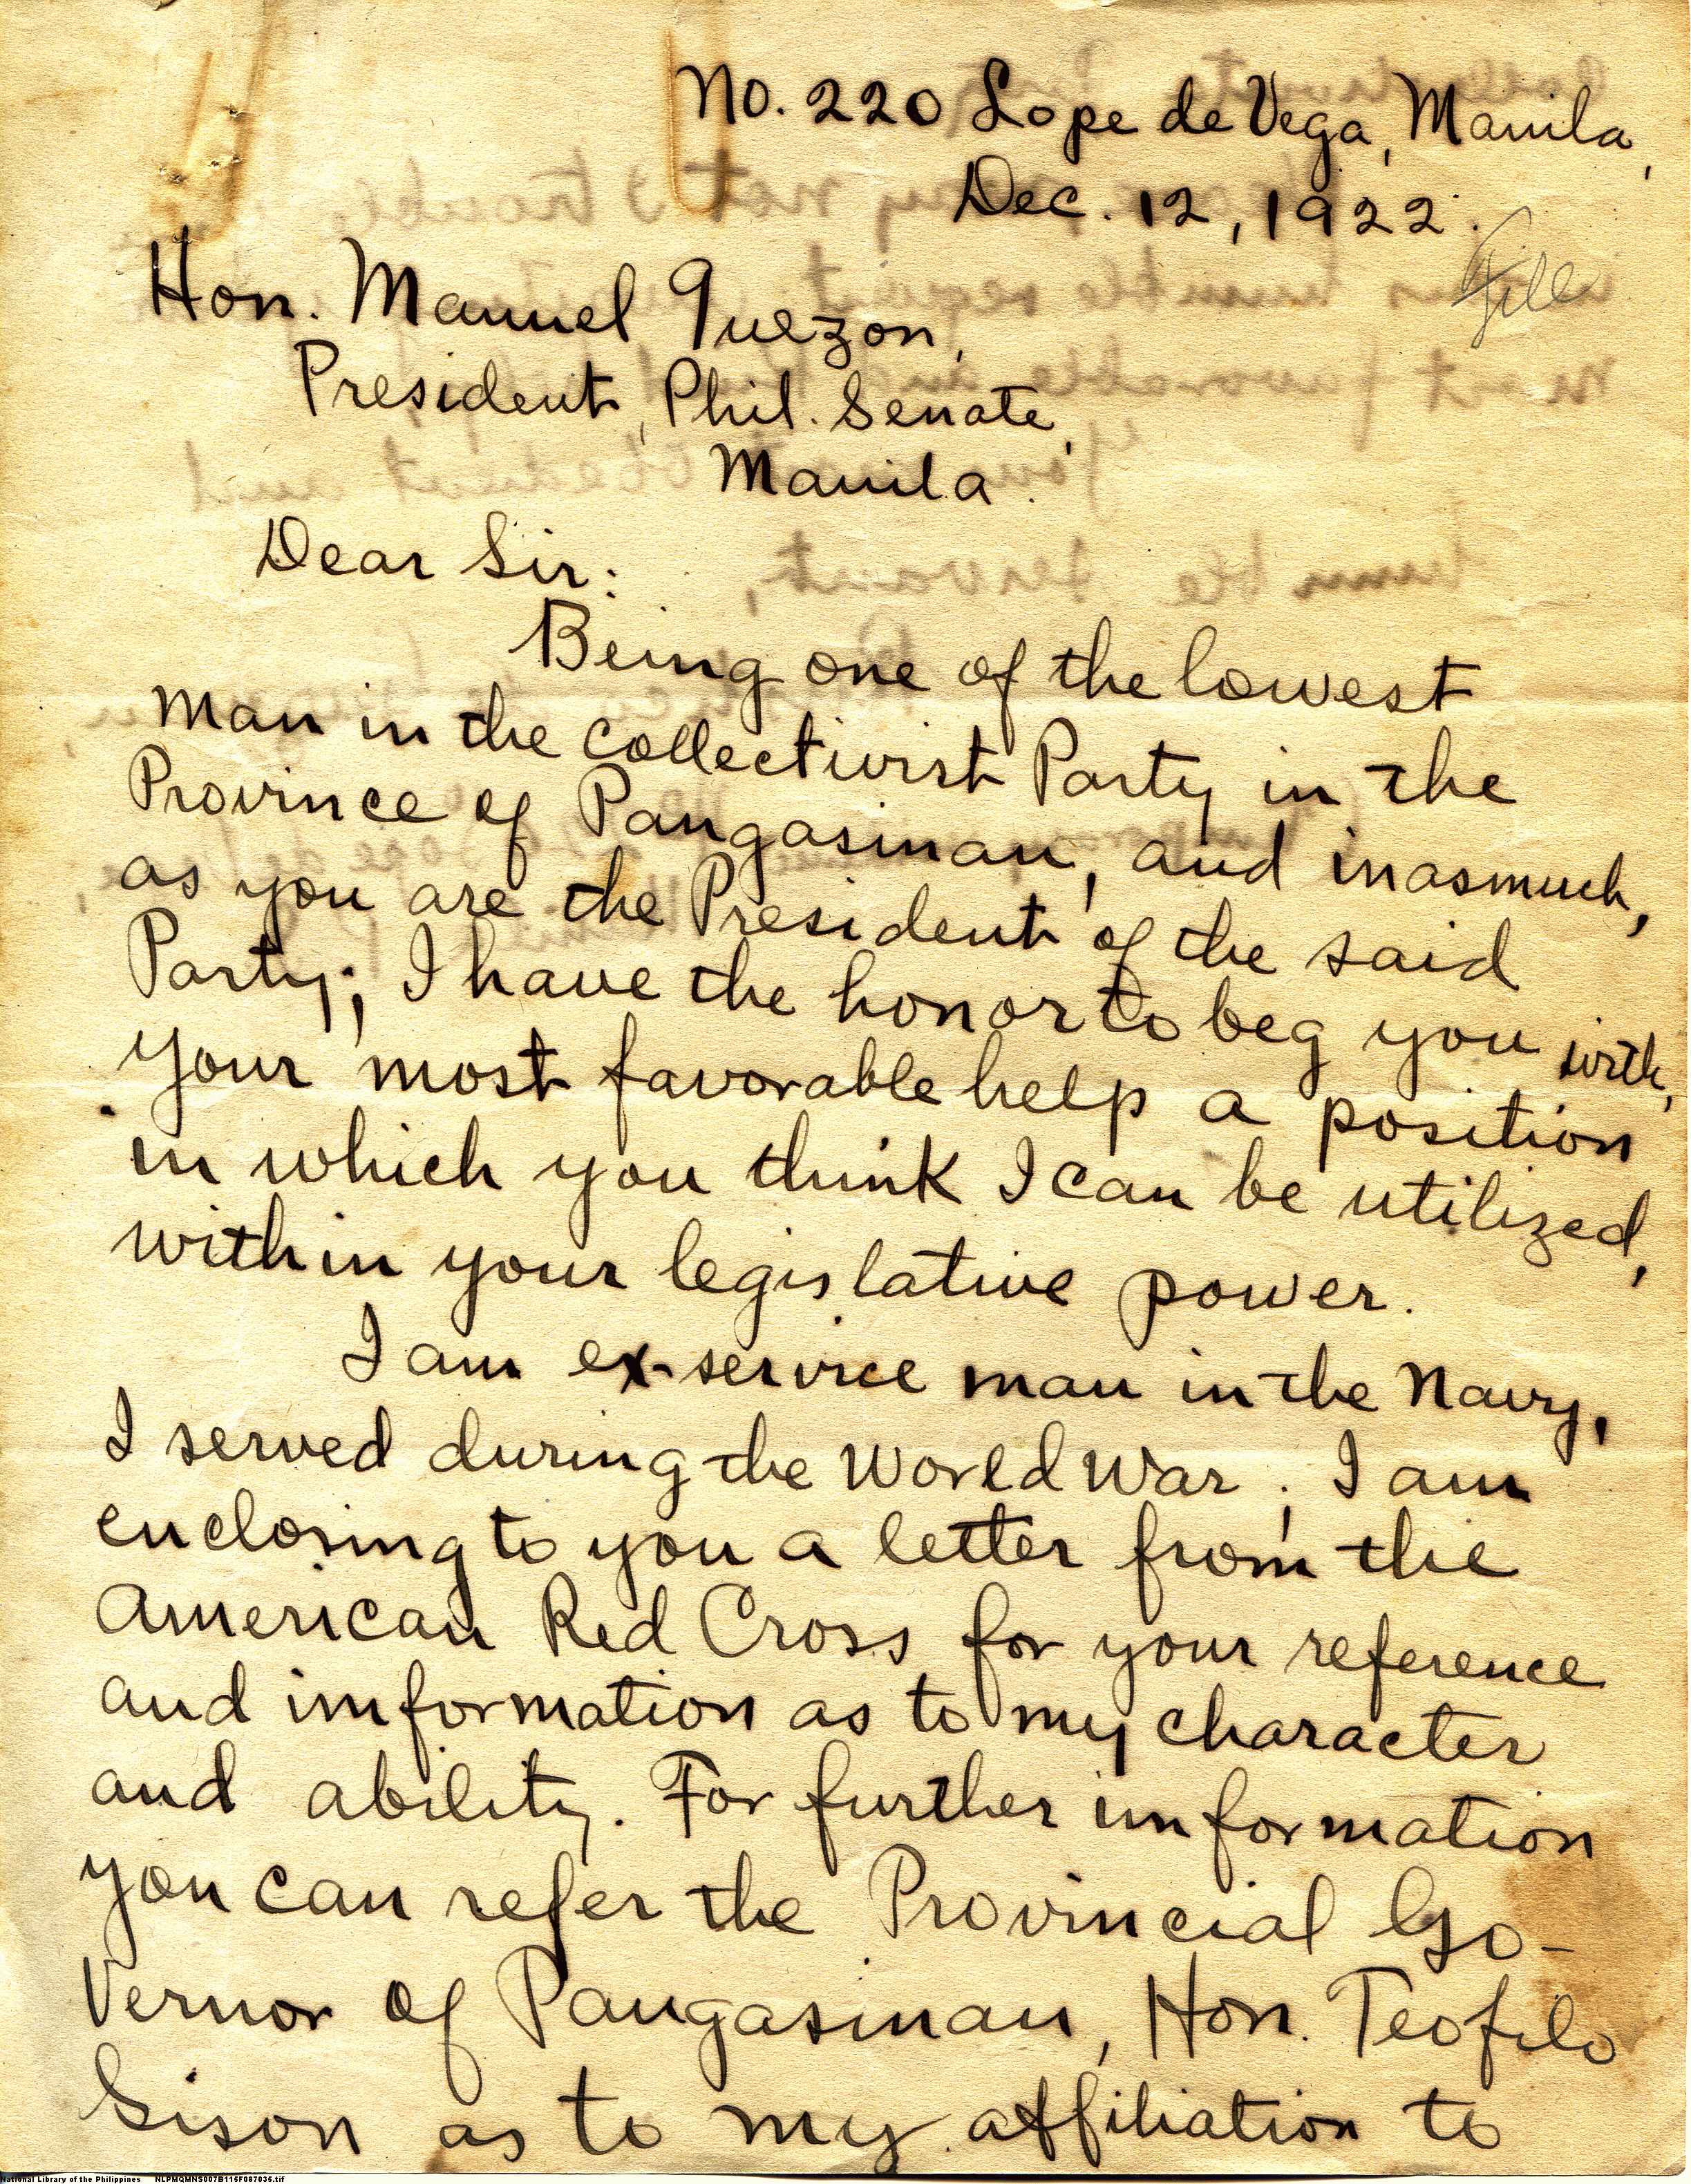 No. 220 Lope de Vega, Manila,
Dec. 12, 1922.
File
Hon. Manuel Quezon,
President, Phil. Senate,
Manila.
Dear Sir:
Being one of the lowest
man in the collectivist Party in the
Province of Pangasinan, and inasmuch,
as you are the President of the said
Party; I have the honor to beg you with,
your most favorable help a position
in which you think I can be utilized,
within your legislative power.
I am ex-service man in the Navy,
I served during the World War; I am
enclosing to you a letter from the
American Red Cross for your reference
and imformation as to my character
and ability. For further imformation
you can refer the Provincial Go-
vernor of Pangasinan, Hon. Teofilo
Sison as to my affiliation to
National Library of the Philippines NLPMQMNS007B115F087035.tif